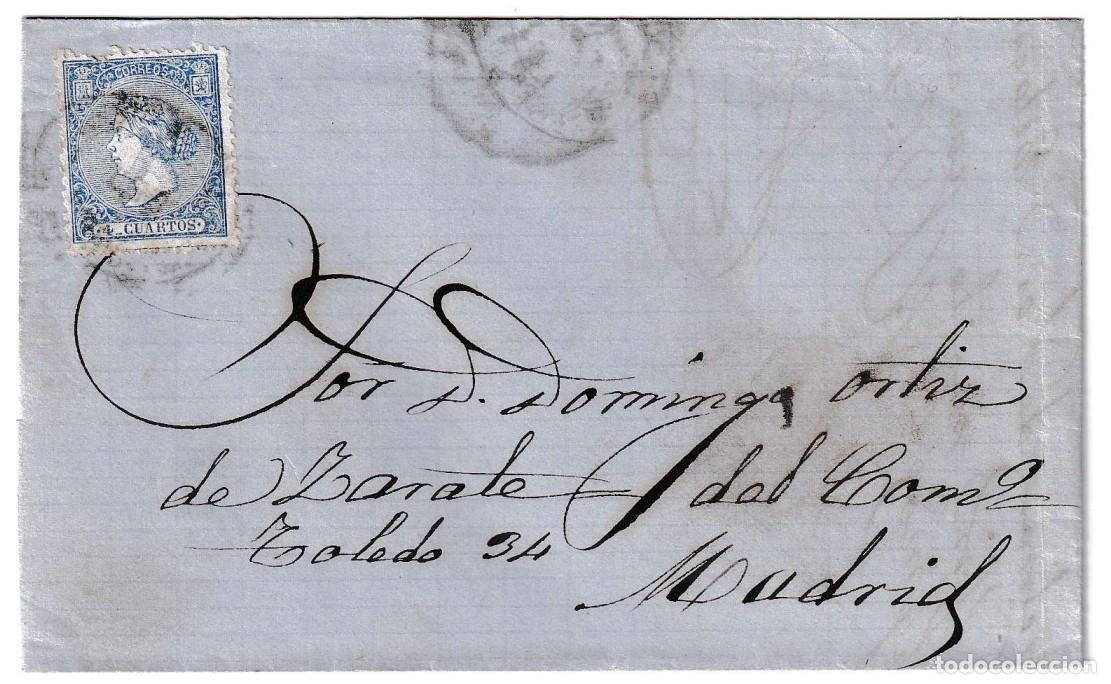 CORREOS
4 CUARTOS
Sor D. Domingo Ortiz
de Zarate del Comº
Toledo 34
Madrid
todocoleccion